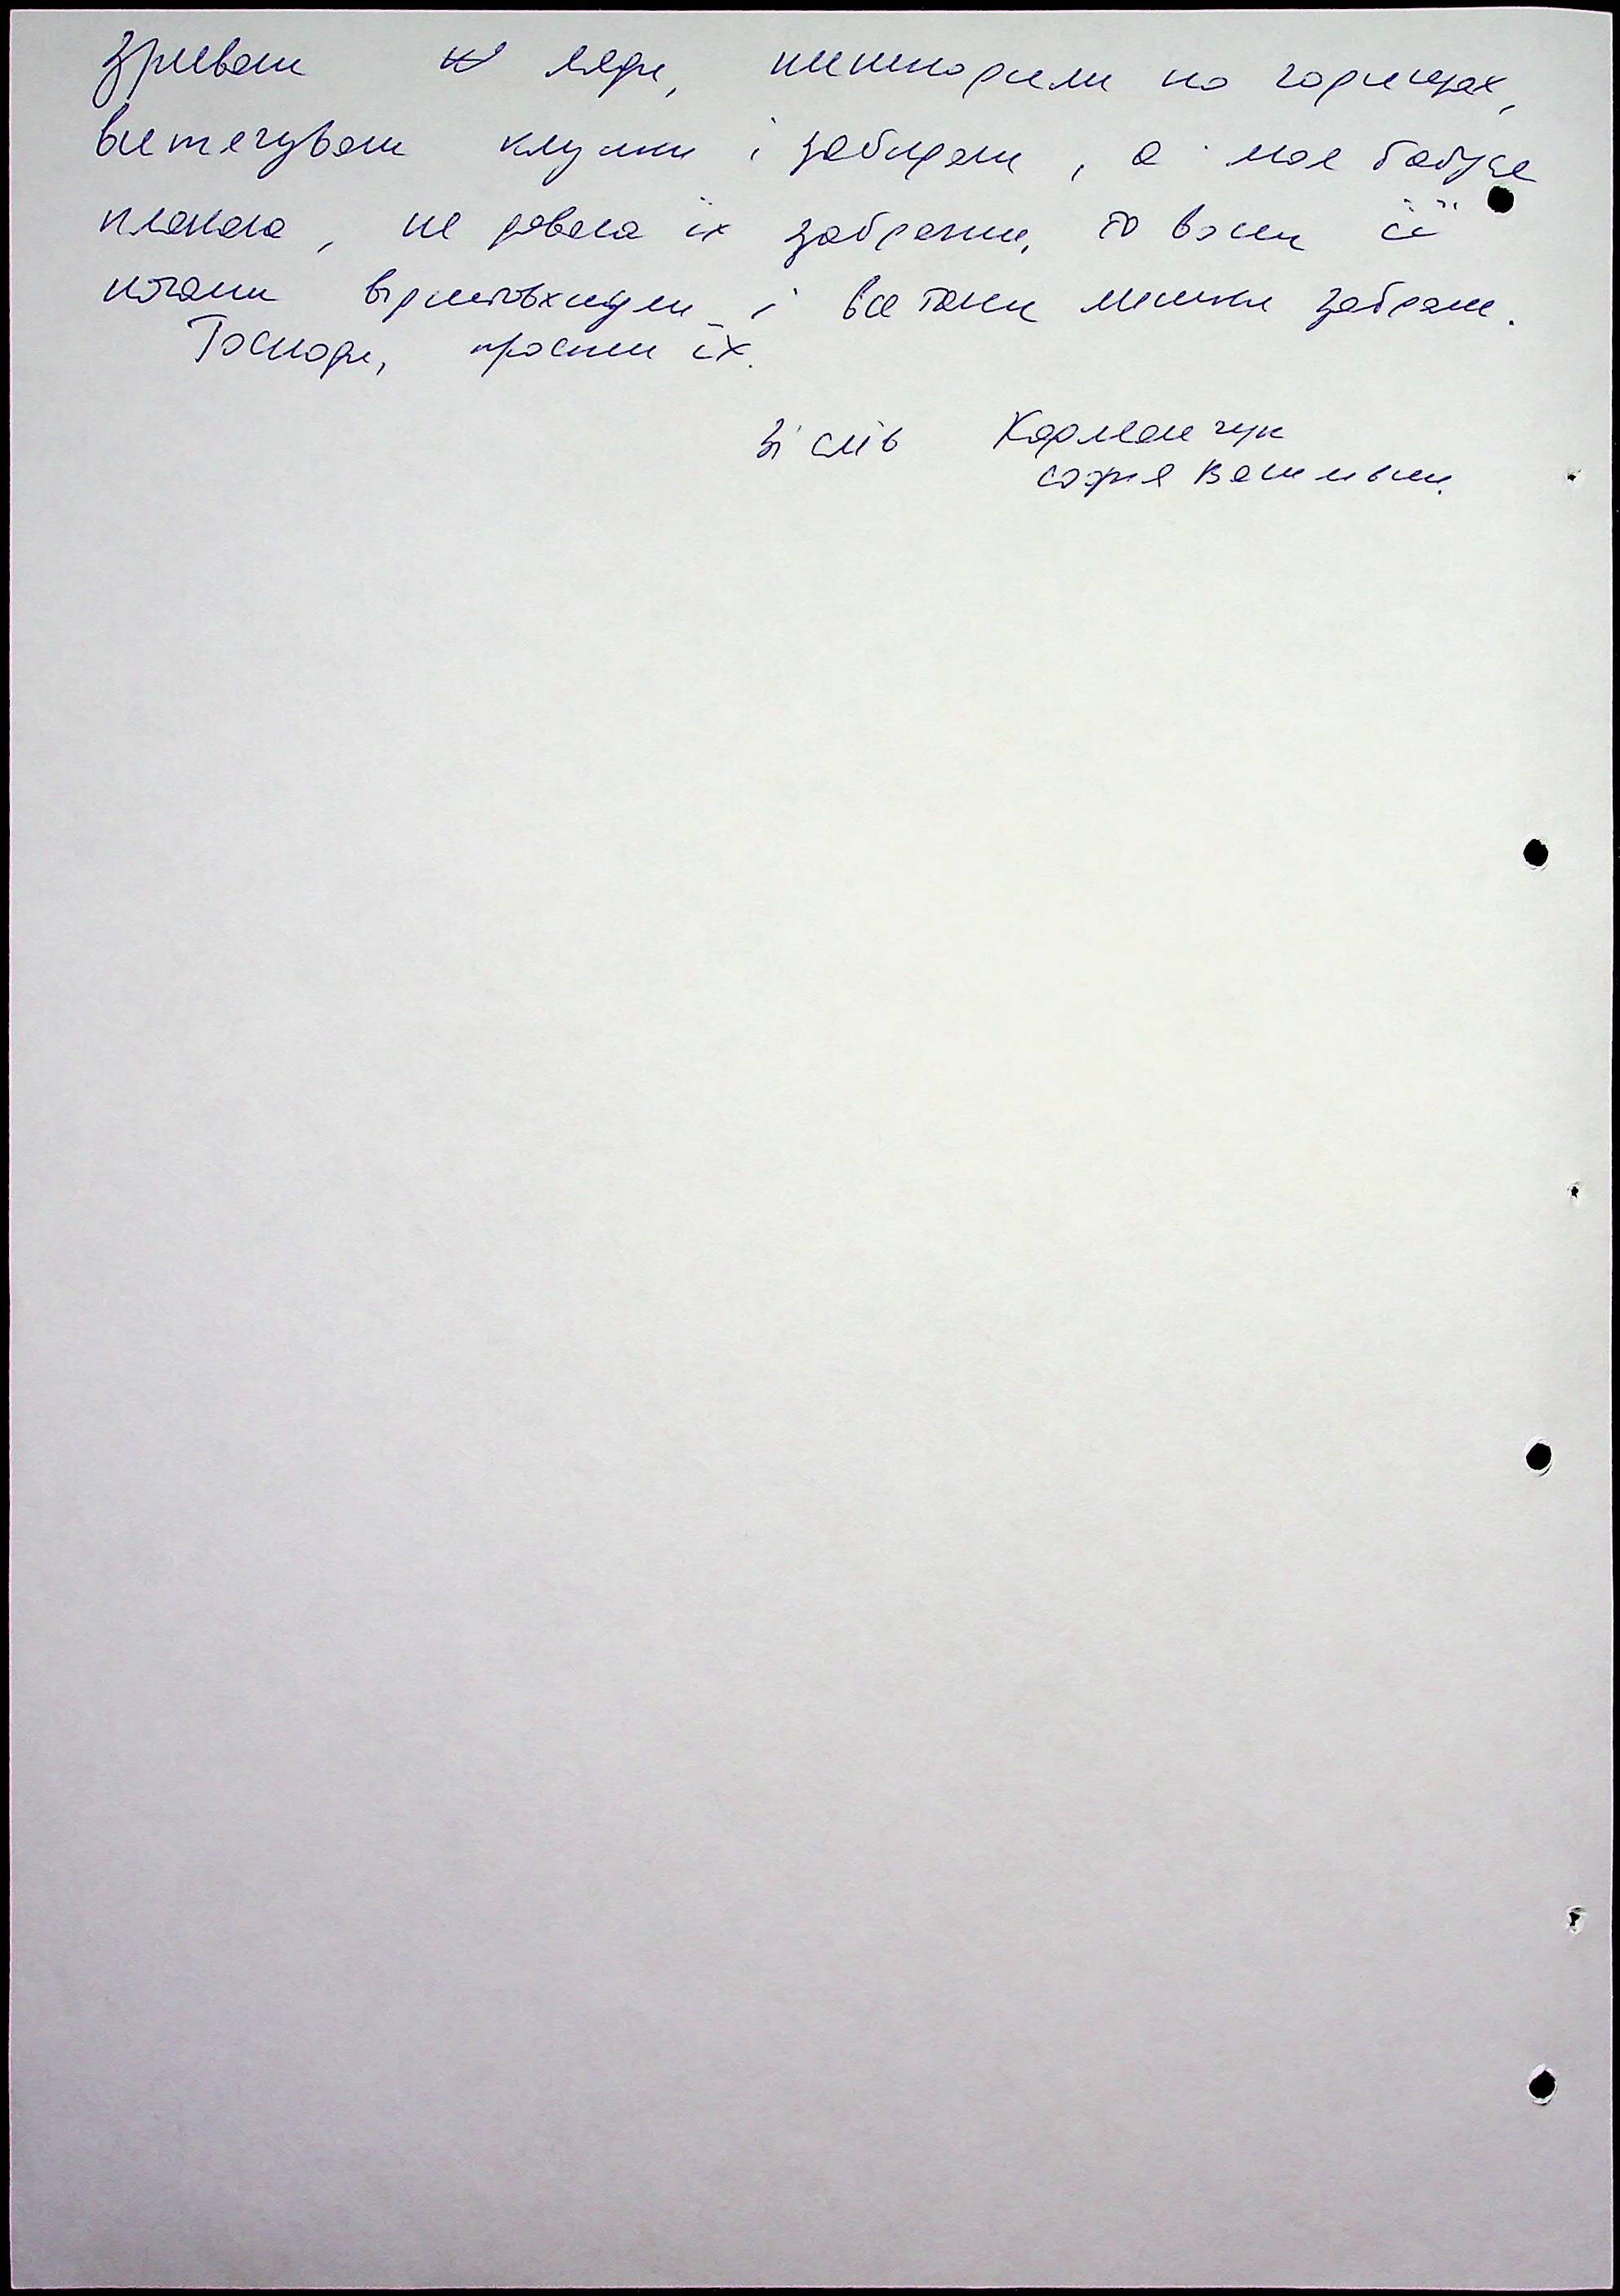 зривали ляди, нишпорили по горищах,
витягували клунки і забирали, а моя бабуся
плакала, не давала їх забрати, то вони її
ногами відштовхнули і все таки мішки забрали.
Господи, прости їх.
Зі слів Карманчук
Софія Василівни.